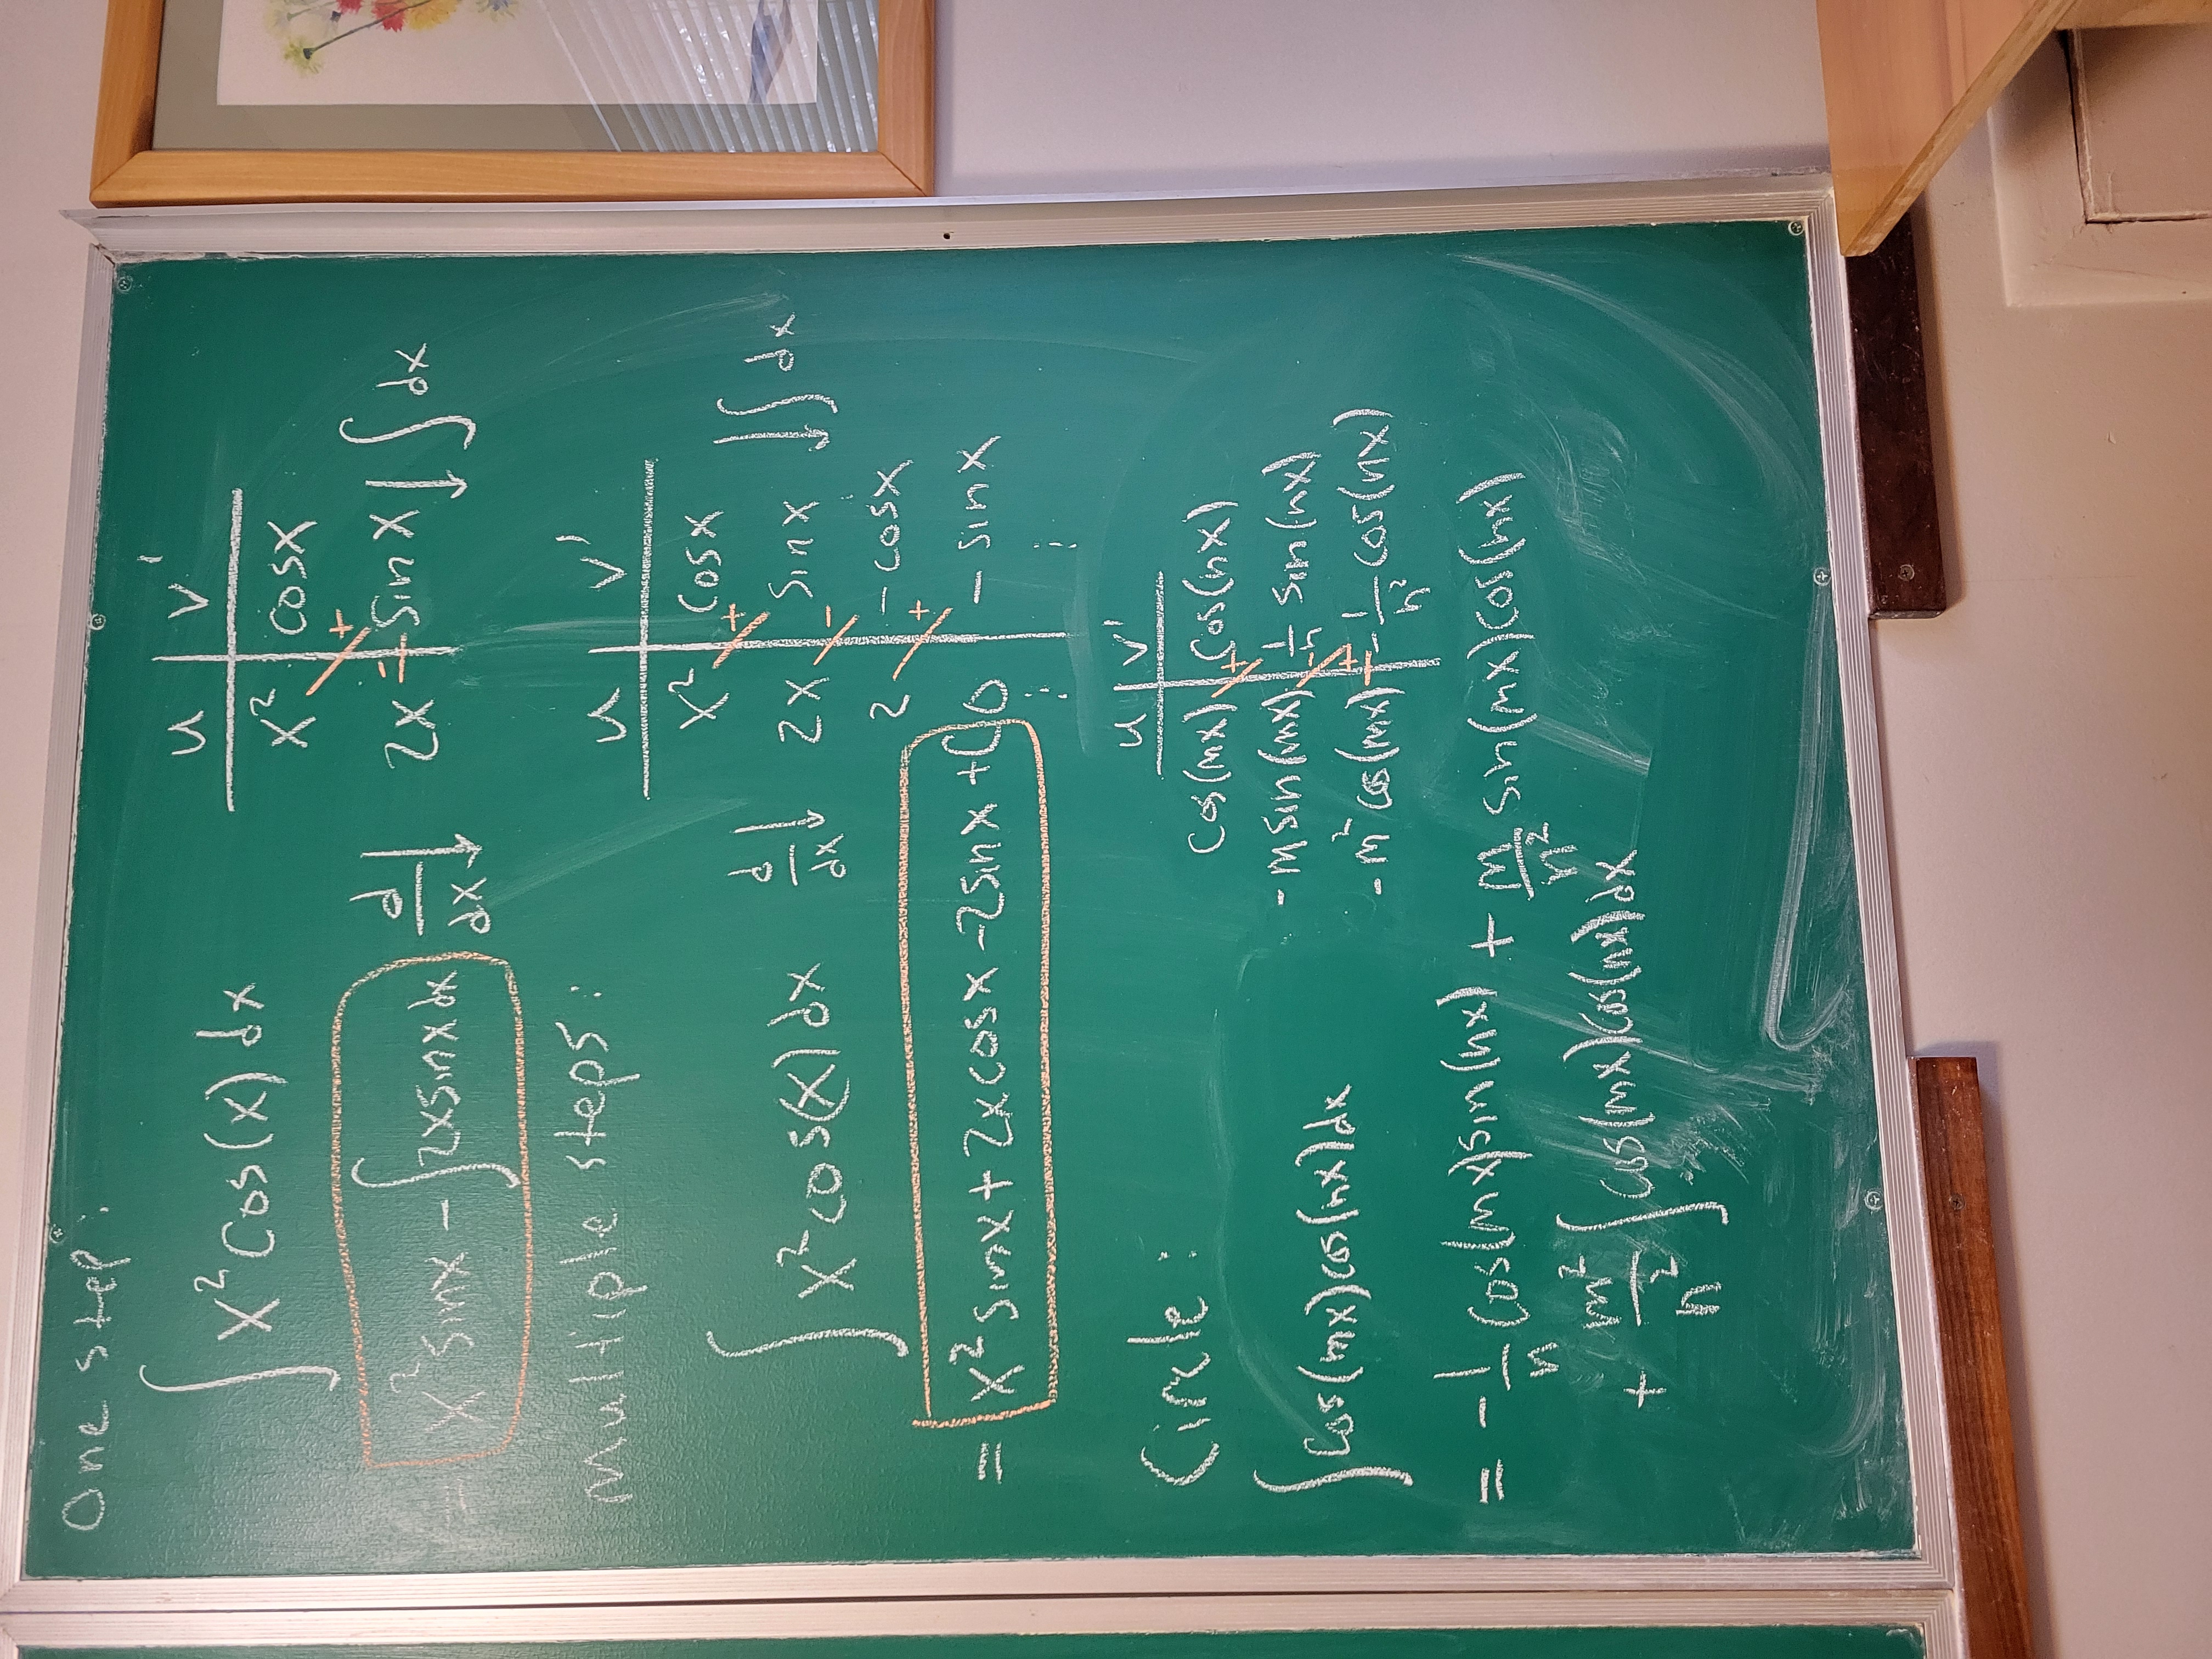 One step:
∫ x² cos(x) dx
u | v'
x² | cosx
+
2x | sin x
−
d/dx ↓
↓ ∫ dx
= x² sinx − ∫ 2x sinx dx
Multiple steps:
∫ x² cos(x) dx
u | v'
x² | cosx
+
2x | sin x
−
2 | − cosx
+
0 | − sin x
⋮ ⋮
d/dx ↓
↓ ∫ dx
= x² sinx + 2x cosx − 2sinx + C
Circle:
∫ cos(mx) cos(nx) dx
u | v'
cos(mx) | cos(nx)
+
− m sin(mx) | 1/n sin(nx)
−
− m² cos(mx) | − 1/n² cos(nx)
+
= − 1/n cos(mx) sin(nx) + m/n² sin(mx) cos(nx)
+ m²/n² ∫ cos(mx) cos(nx) dx